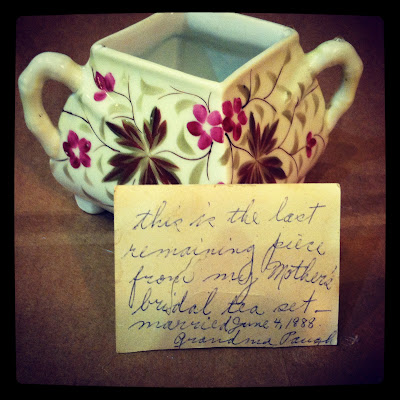 this is the last
remaining piece
from my Mother's
bridal tea set—
married June 4, 1988
Grandma Paugh